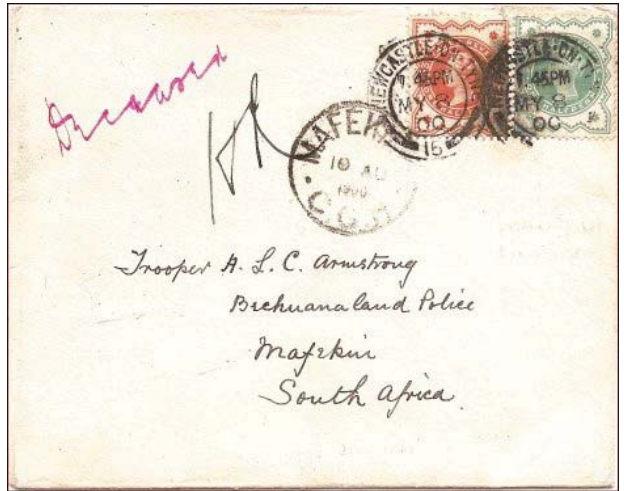 Deceased
NEWCASTLE·ON·TYNE
1.45PM
MY 8
00
15
NEWCASTLE·ON·T
1.45PM
MY 8
00
MAFEK
10 AU
1900
C.G.H
Trooper A. L. C. Armstrong
Bechuanaland Police
Mafekin
South Africa